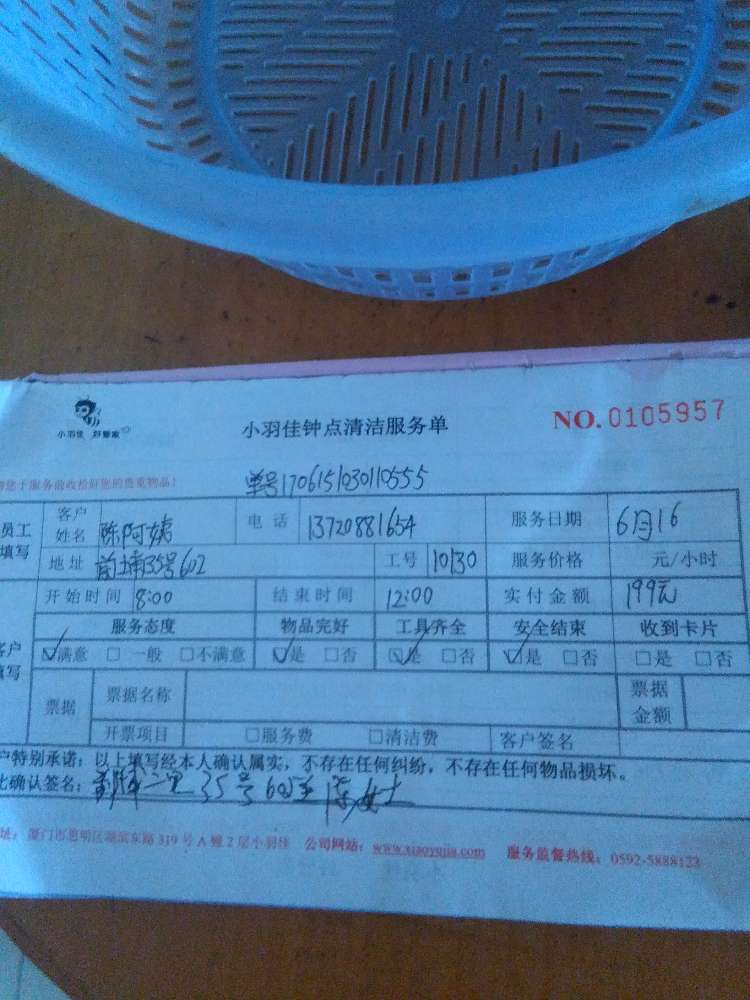 小羽佳 好管家
小羽佳钟点清洁服务单
NO. 0105957
您于服务前收拾好您的贵重物品!
单号1706151030110555
员工填写
客户姓名 陈阿姨 电话 13720881654 服务日期 6月16
地址 前埔35号602 工号 10130 服务价格 元/小时
开始时间 8:00 结束时间 12:00 实付金额 199元
客户填写
服务态度 物品完好 工具齐全 安全结束 收到卡片
☑满意 □一般 □不满意 ☑是 □否 ☑是 □否 ☑是 □否 □是 □否
票据 票据名称 票据金额
开票项目 □服务费 □清洁费 客户签名
户特别承诺:以上填写经本人确认属实,不存在任何纠纷,不存在任何物品损坏。
此确认签名: 二里 35号602室 陈女士
址:厦门市思明区湖滨东路319号A幢2层小羽佳 公司网站:www.xiaoyujia.com 服务监督热线:0592-5888123